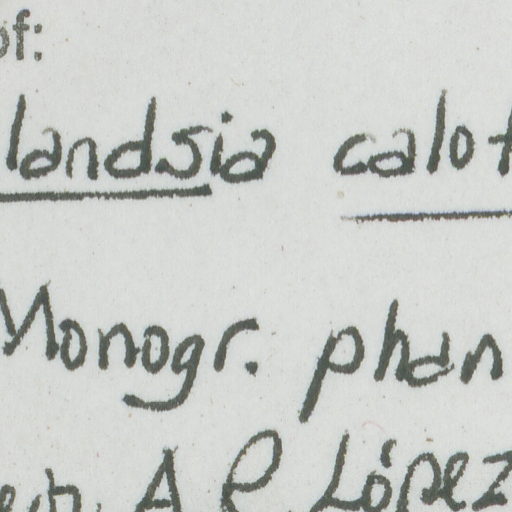 of:
landsia calot
Monogr. phan
A. R. López